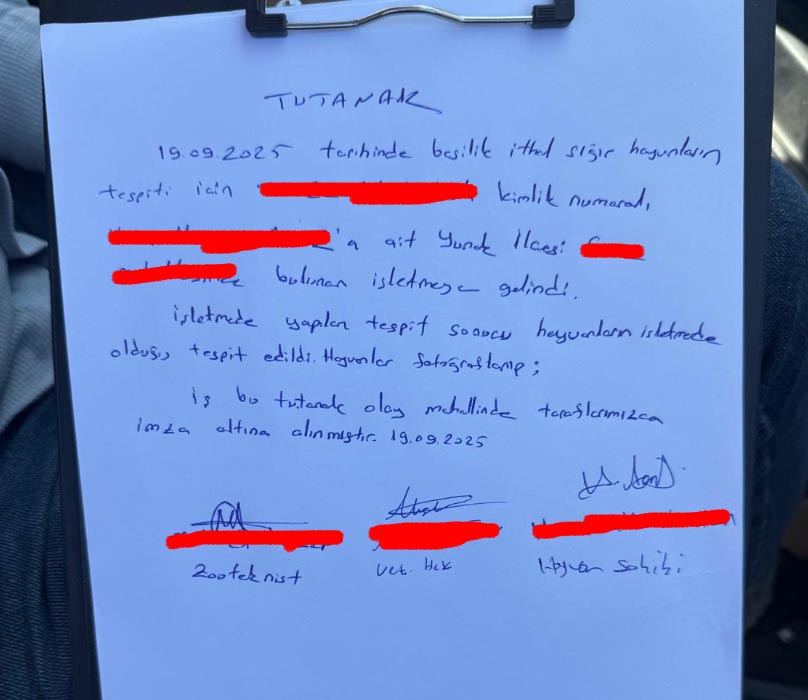 TUTANAK
19.09.2025 tarihinde besilik ithal sığır hayvanların
tespiti için kimlik numaralı,
'a ait Yunak İlçesi
bulunan işletmeye gelindi.
işletmede yapılan tespit sonucu hayvanların işletmede
olduğu tespit edildi. Hayvanlar fotoğraflanıp;
iş bu tutanak olay mahallinde taraflarımızca
imza altına alınmıştır. 19.09.2025
Zooteknist Vet. Hek Hayvan Sahibi